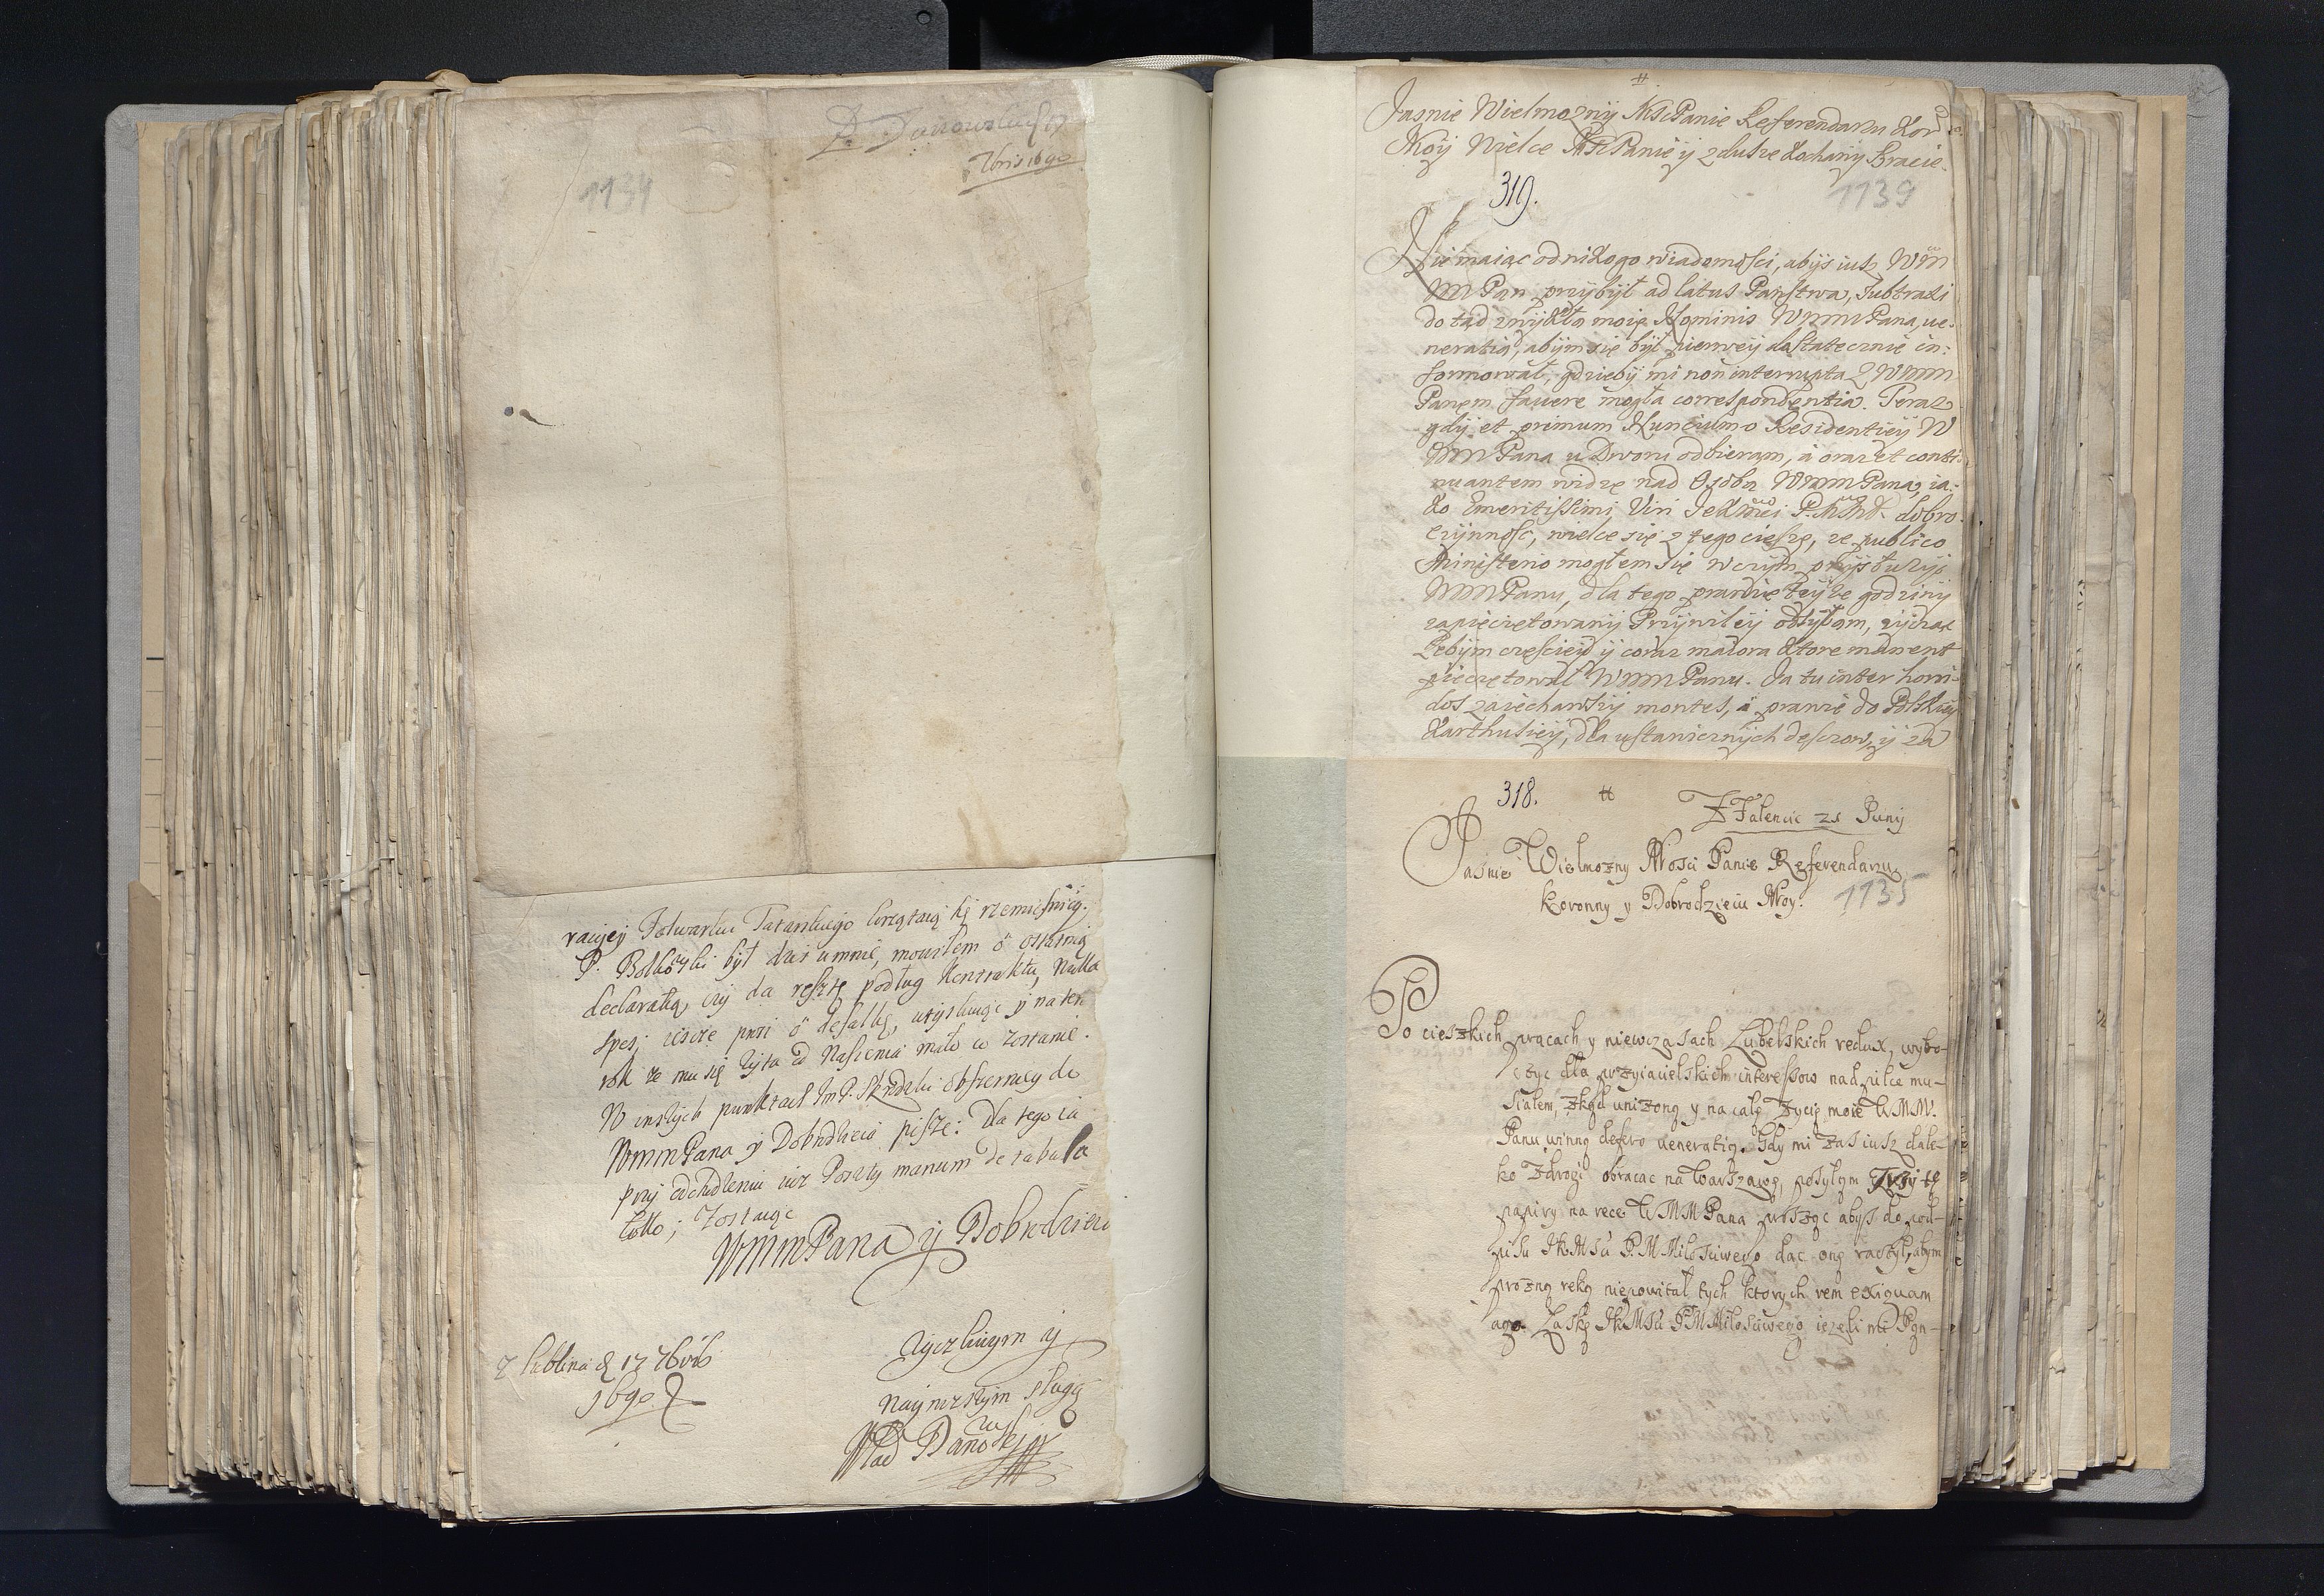 P. Danowski 17
7bris 1690
1134
racyey Folwarku Tatarskiego krzątaią się rzemiesnicy.
P. Bolkowski był dziś u mnie, mowiłem o ostatnią
declaratią, czy da resztę podług Kontraktu, nulla
spes; iescze prosi o defalkę, uzyskuiąc y na ten
rok ze mu się zyta od Nasienia mało co zostanie.
W inszych punktach ImP. obszerniey do
WmmPana y Dobrodzieia pisze: dla tego ia
przy odchodzeniu iuz Poczty manum de tabula
tollo; Zostaiąc
WmmPana y Dobrodzieia
Zyczliwym y
Nayniższym sługą
Wład Danowski
Z Lublina d 17 7bris
1690
Jasnie Wielmozny Msci Panie Referendarzu Kor
Moy Wielce Msci Panie y z dusze Kochany Bracie.
319.
1139
Nie maiąc od nikogo wiadomosci, abyś iusz Wm
MPan przybył ad latus Panstwa, Subtraxi
do tąd zwykłą moię Nominis WmmPana, ve-
neratią, abym się był pierwey dostatecznie in-
formował, gdzieby mi non interrupta z Wmm
Panem favere mogła correspondentia. Teraz
gdy et primum Nuncium o Residentiey W
MMPana u Dworu odbieram, a oraz et conti-
nuantem widzę nad Osobą WmmPana, ia-
ko Emeritissimi Viri JeKMci P.M.M. dobro-
czynność, wielce się z tego cieszę, ze publico
Ministerio mogłem się w czym przysłuzyć
WmmPanu, dla tego prawie teyze godziny
zapieczętowany Przywiley odsyłam, zycząc
Zebym częściey y coraz maiora ktore manent
pieczętował WmmPanu. Ja tu inter horri-
dos zaiechawszy montes, a prawie do Polskiey
Karthusiey, dla ustawicznych deszczow, y za
318.
Z Falencic 21 Juny
Jasnie Wielmozny Mosci Panie Referendarzu
Koronny y Dobrodzieiu Moy.
1135
Po cieszkich pracach y niewczasach Lubelskich redux, wybo-
czyc dla przyiacielskich interessow nad pilce mu-
siałem, zkąd unizoną y na całe zycie moie WMM.
Panu winną defero veneratią. Gdy mi zas iusz dale-
ko z drogi obracac na Warszawę, posyłam Trzy te
papiry na rece WMMPana prosząc abys do pod-
pisu JKMsci P.M.Miłosciwego dac one raczył, abym
prozną reką niepowitał tych ktorych rem exiguam
ago. Łaskę JKMsci P.M.Miłosciwego iezeli mi Pan-